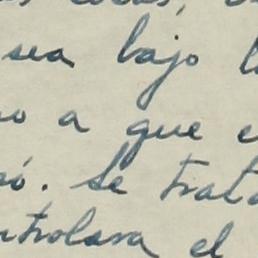 sea bajo
a que
só. Se trat
ntrolara el